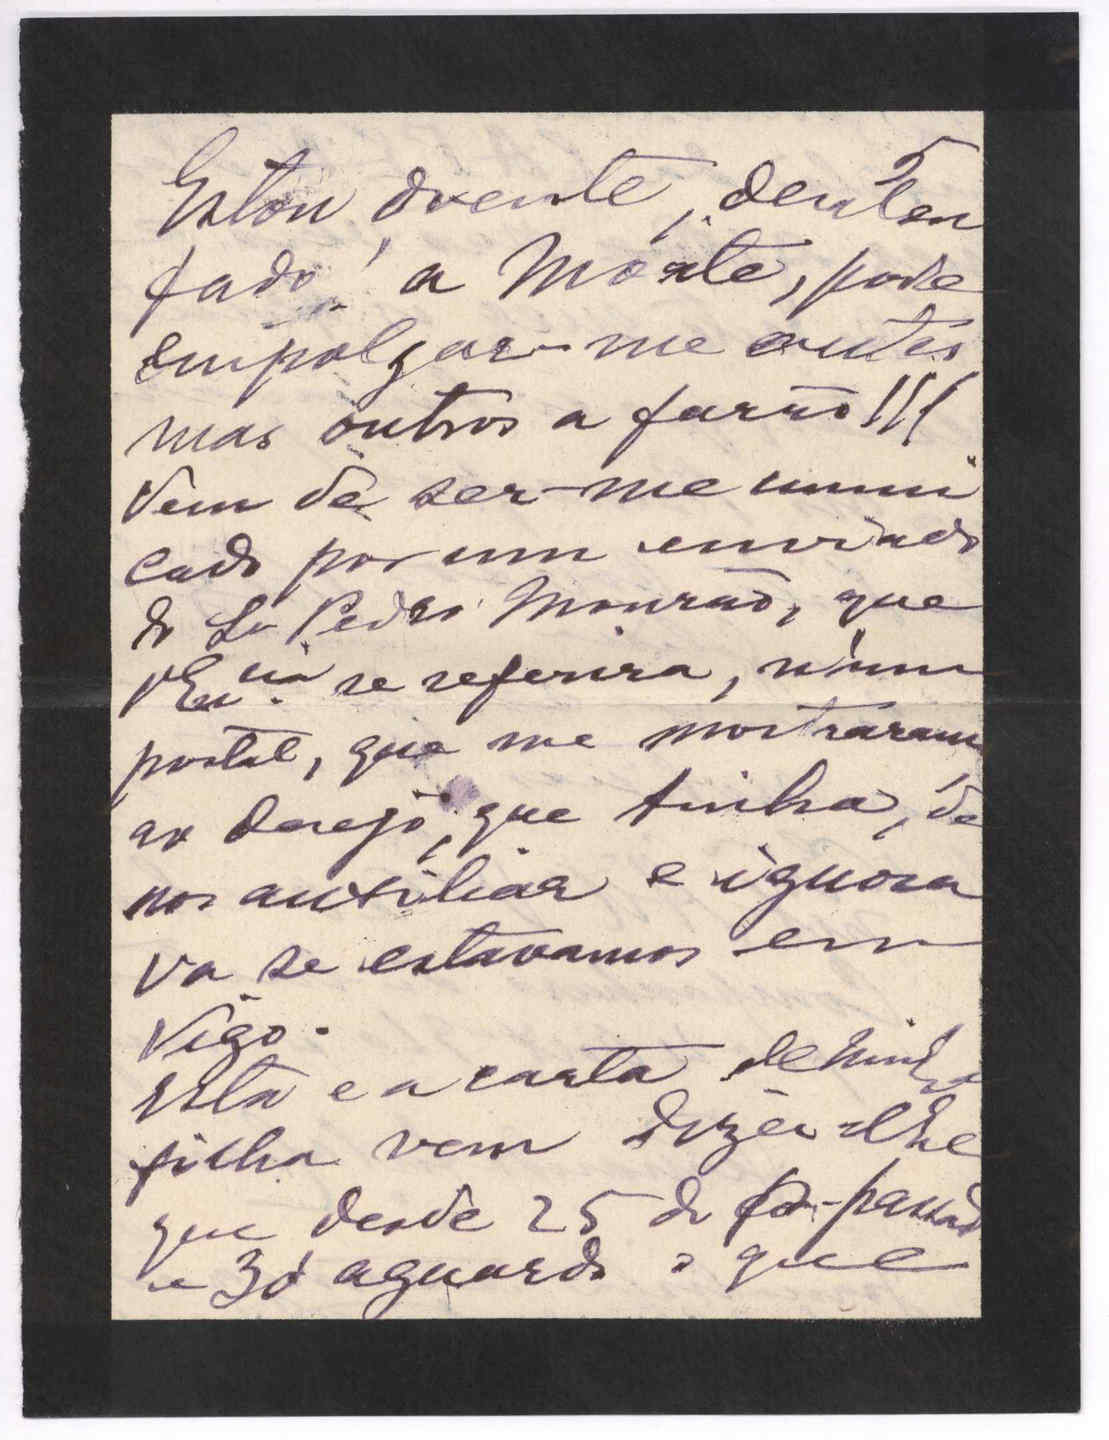 5
Estou doente, desten
fado! a Morte, pode
empolgar-me antes
mas outros a farão!!!
Vem de ser-me comuni
cado por um enviado
do Sr Pedro Mourão, que
V Excia se referira, n'um
postal, que me mostraram
ao desejo, que tinha, de
nos auxiliar e ignora
va se estavamos em
Vigo.
Esta e a carta de minha
filha vem dizer-lhe
que desde 25 do passado
e 30 aguardo o que